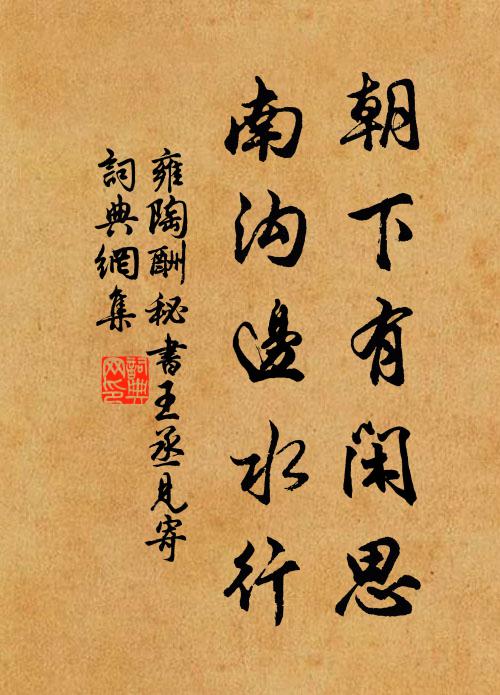 朝下有闲思
南沟邊水行
雍陶酬秘書王丞見寄
詞典網集
詞典
网印